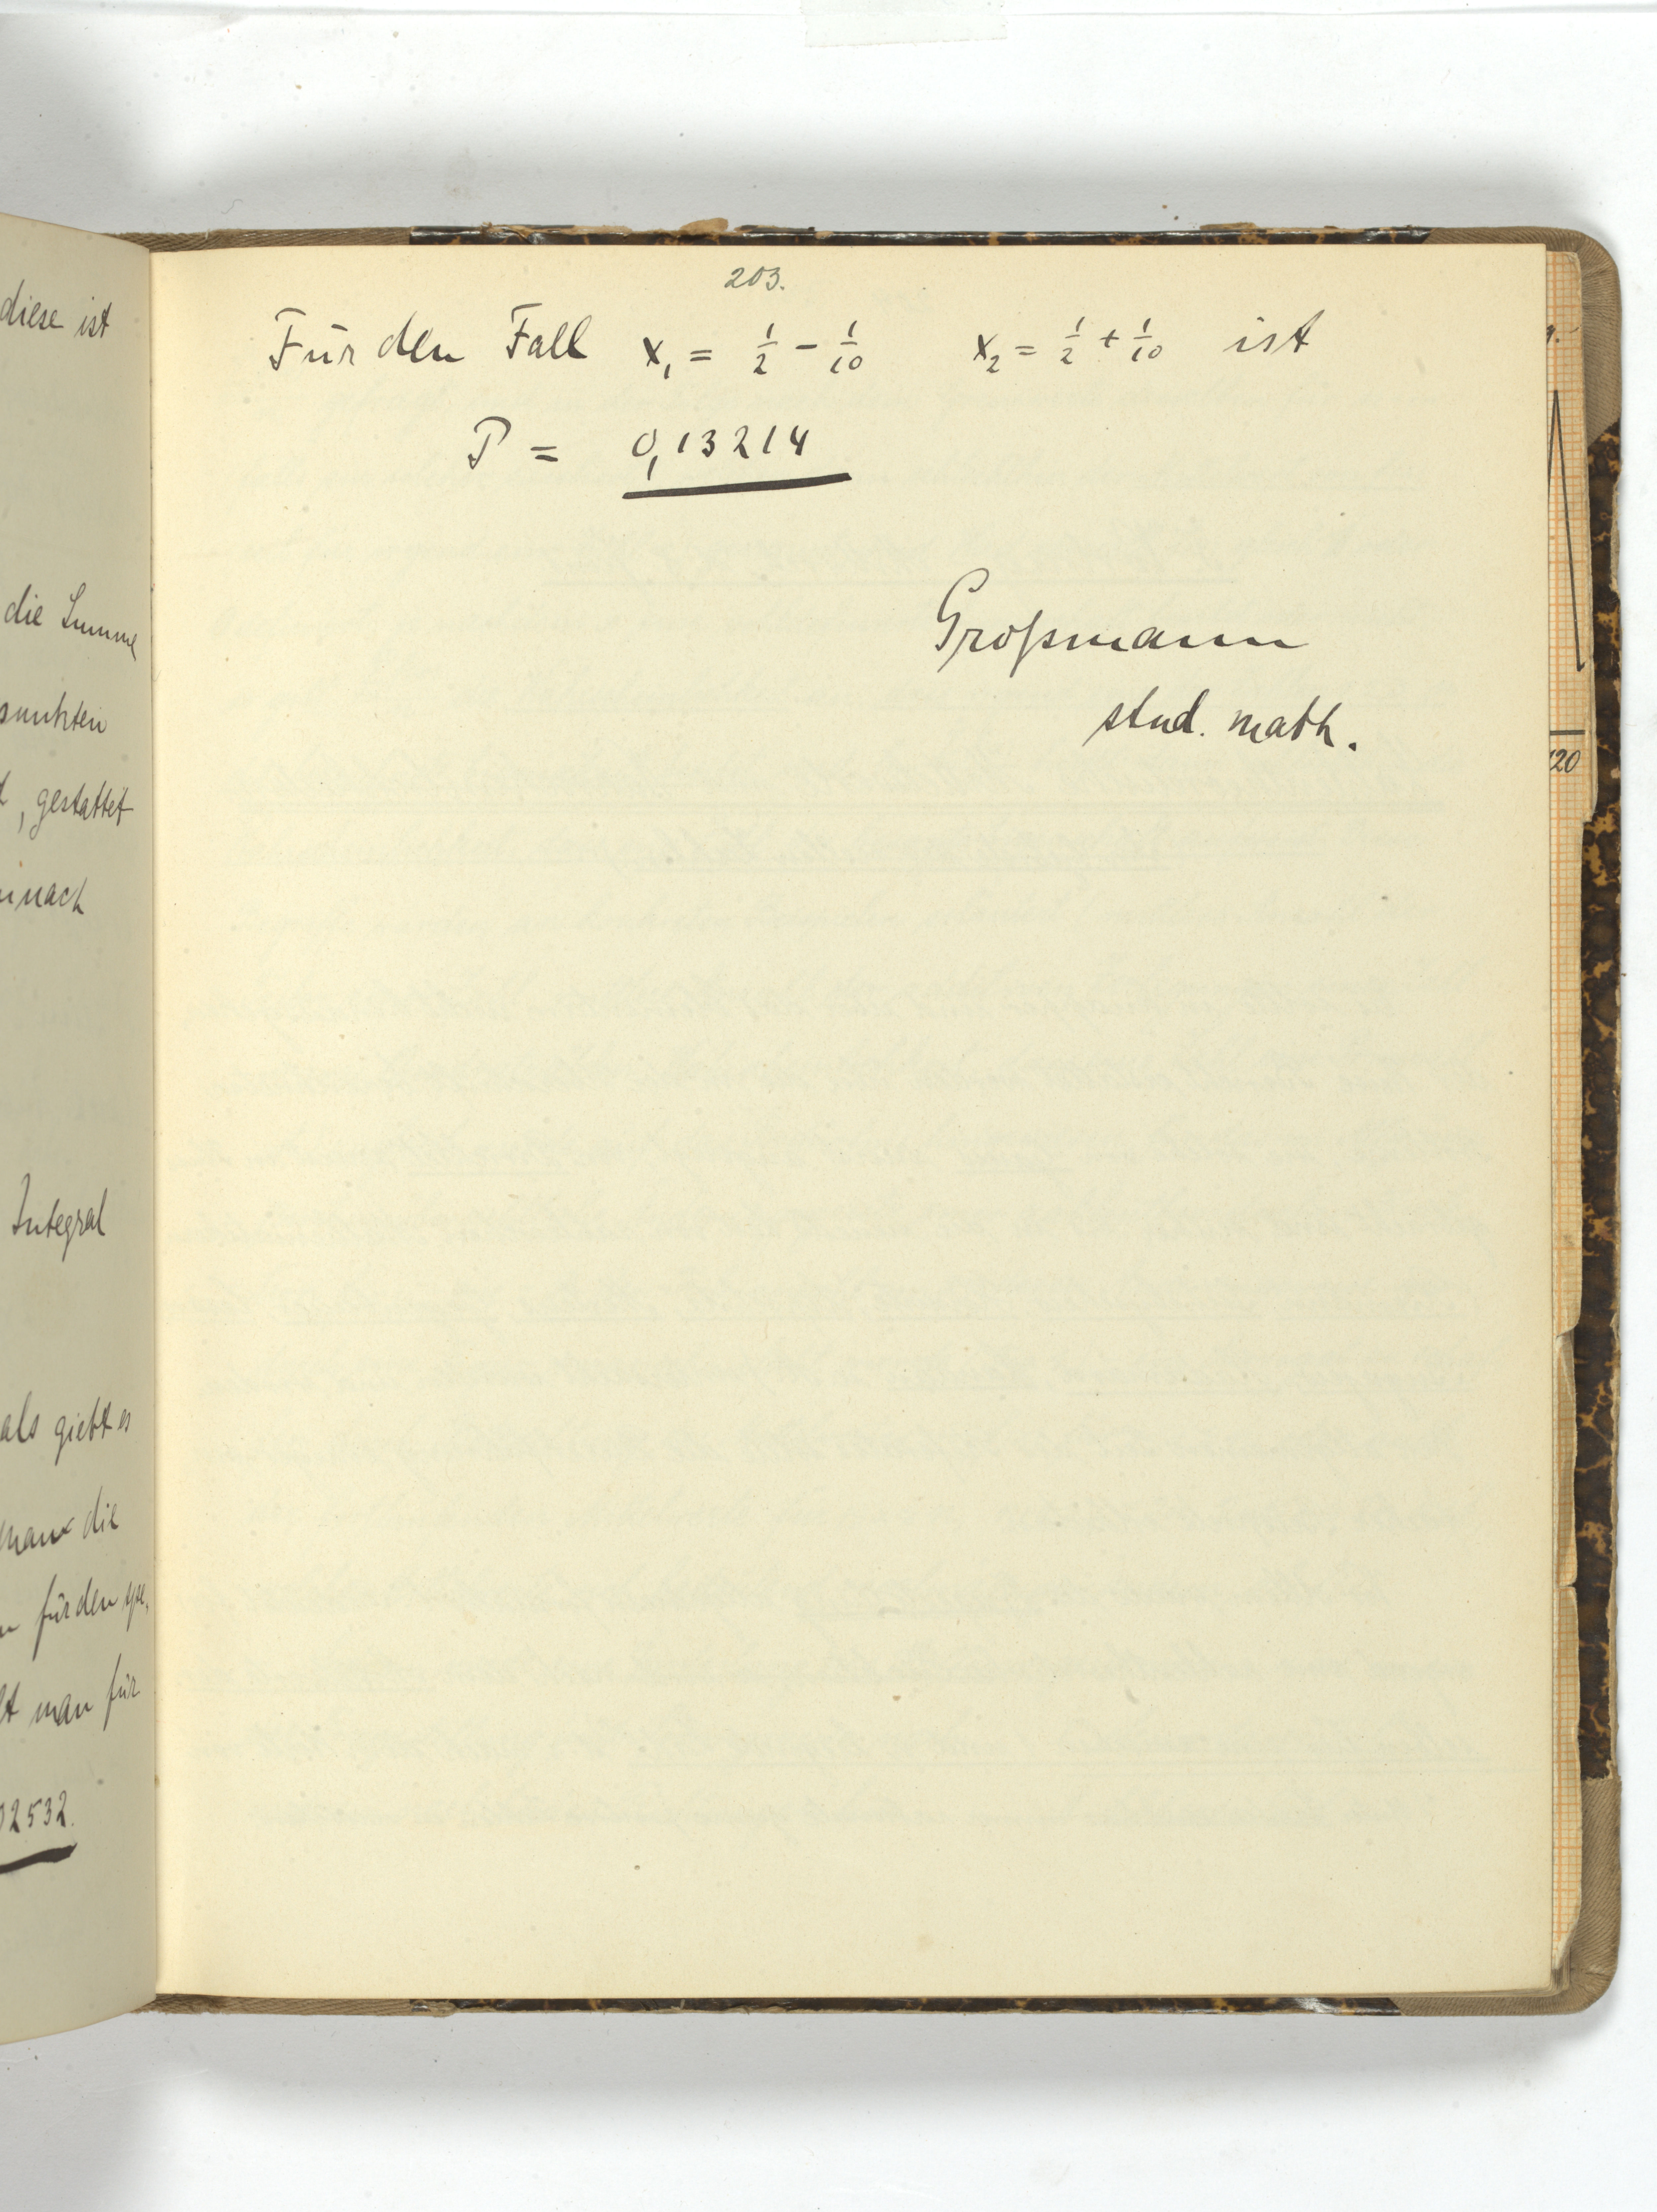 diese ist
die Summe
punkten
, gestattet
nach
Integral
als giebt es
man die
für den spe.
man für
02532.
203.
Für den Fall x₁ = 1/2 − 1/10 x₂ = 1/2 + 1/10 ist
P = 0,13214
Großmann
stud. math.
120